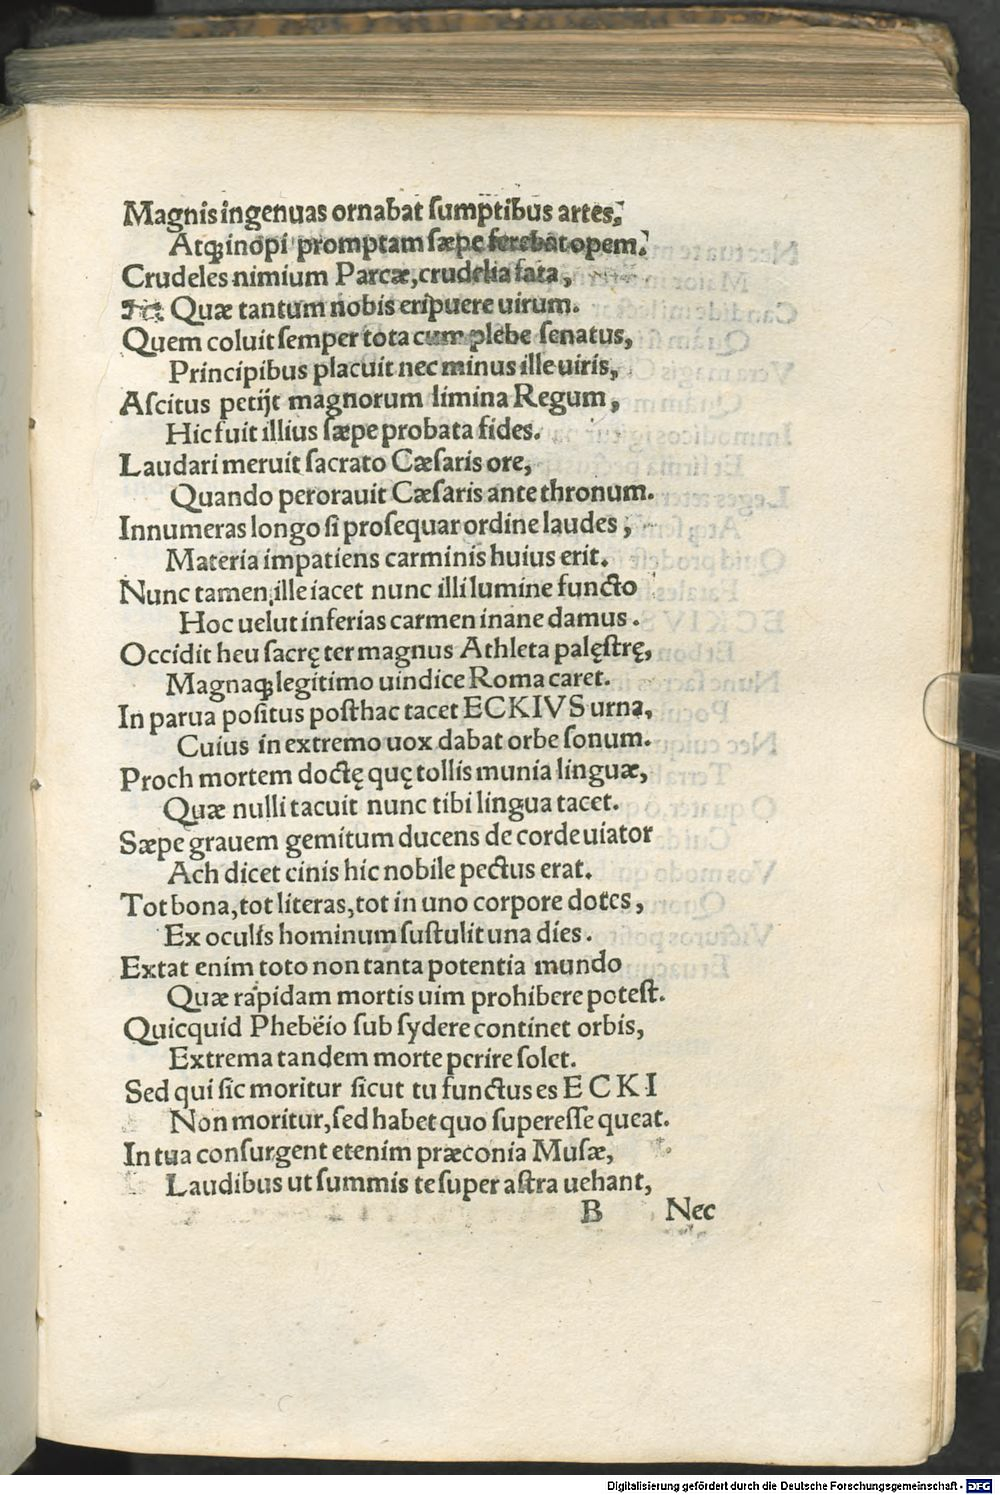 Magnis ingenuas ornabat ſumptibus artes,
Atqꝫ inopi promptam ſæpe ferebat opem.
Crudeles nimium Parcæ, crudelia fata,
Quæ tantum nobis eripuere uirum.
Quem coluit ſemper tota cum plebe ſenatus,
Principibus placuit nec minus ille uiris,
Aſcitus petijt magnorum limina Regum,
Hic fuit illius ſæpe probata fides.
Laudari meruit ſacrato Cæſaris ore,
Quando perorauit Cæſaris ante thronum.
Innumeras longo ſi proſequar ordine laudes,
Materia impatiens carminis huius erit.
Nunc tamen ille iacet nunc illi lumine functo
Hoc uelut inferias carmen inane damus.
Occidit heu ſacrę ter magnus Athleta palęſtrę,
Magnaqꝫ legitimo uindice Roma caret.
In parua poſitus poſthac tacet ECKIVS urna,
Cuius in extremo uox dabat orbe ſonum.
Proch mortem doctę quę tollis munia linguæ,
Quæ nulli tacuit nunc tibi lingua tacet.
Sæpe grauem gemitum ducens de corde uiator
Ach dicet cinis hic nobile pectus erat.
Tot bona, tot literas, tot in uno corpore dotes,
Ex oculis hominum ſuſtulit una dies.
Extat enim toto non tanta potentia mundo
Quæ rapidam mortis uim prohibere poteſt.
Quicquid Phebëio ſub ſydere continet orbis,
Extrema tandem morte perire ſolet.
Sed qui ſic moritur ſicut tu functus es ECKI
Non moritur, ſed habet quo ſupereſſe queat.
In tua conſurgent etenim præconia Muſæ,
Laudibus ut ſummis te ſuper aſtra uehant,
B Nec
Digitalisierung gefördert durch die Deutsche Forschungsgemeinschaft - DFG